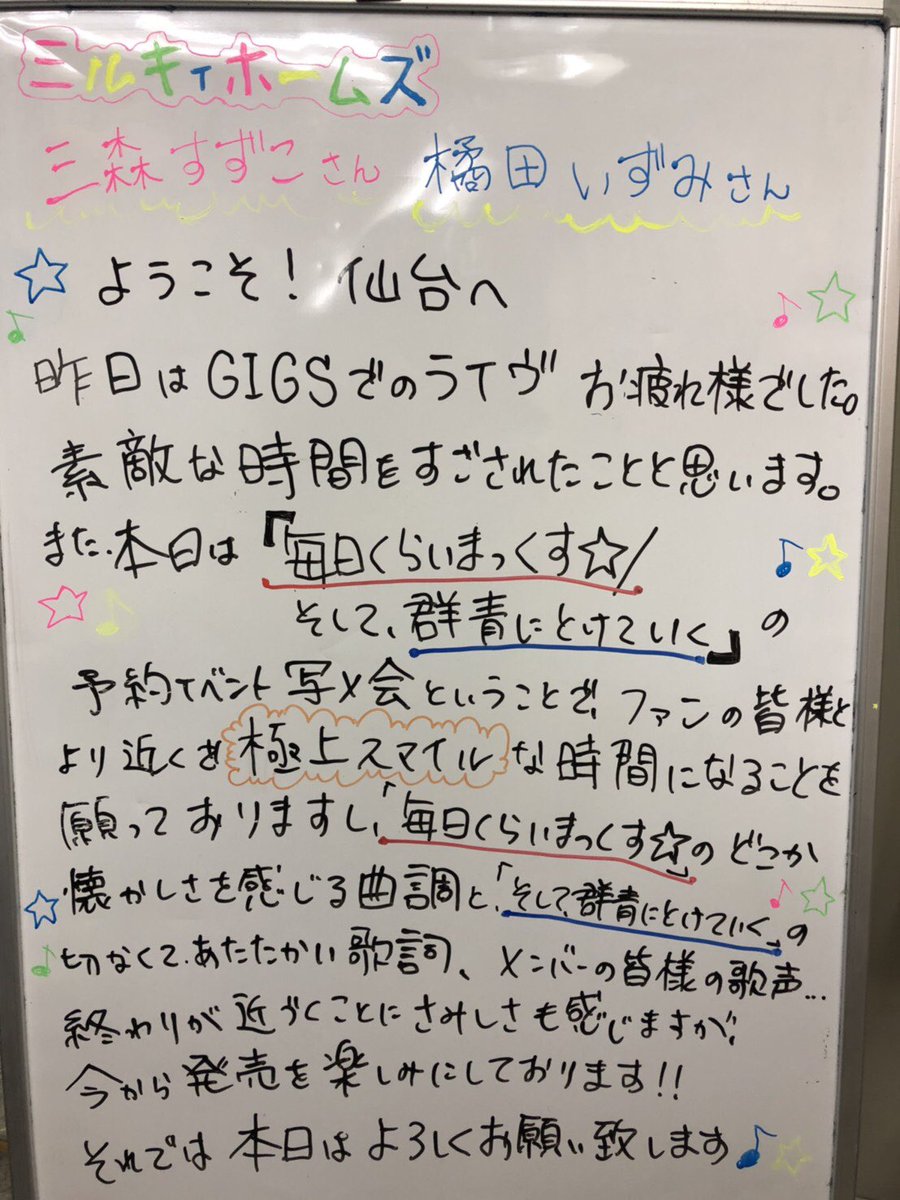 ミルキィホームズ
三森すずこさん 橘田いずみさん
ようこそ! 仙台へ
昨日はGIGSでのライヴ お疲れ様でした。
素敵な時間をすごされたことと思います。
また、本日は『「毎日くらいまっくす☆/
そして、群青にとけていく』の
予約イベント写メ会ということで、ファンの皆様と
より近くで極上スマイルな時間になることを
願っておりますし、「毎日くらいまっくす☆」のどこか
懐かしさを感じる曲調と、「そして、群青にとけていく」の
切なくて、あたたかい歌詞、メンバーの皆様の歌声...
終わりが近づくことにさみしさも感じますが、
今から発売を楽しみにしております!!
それでは本日はよろしくお願い致します♪